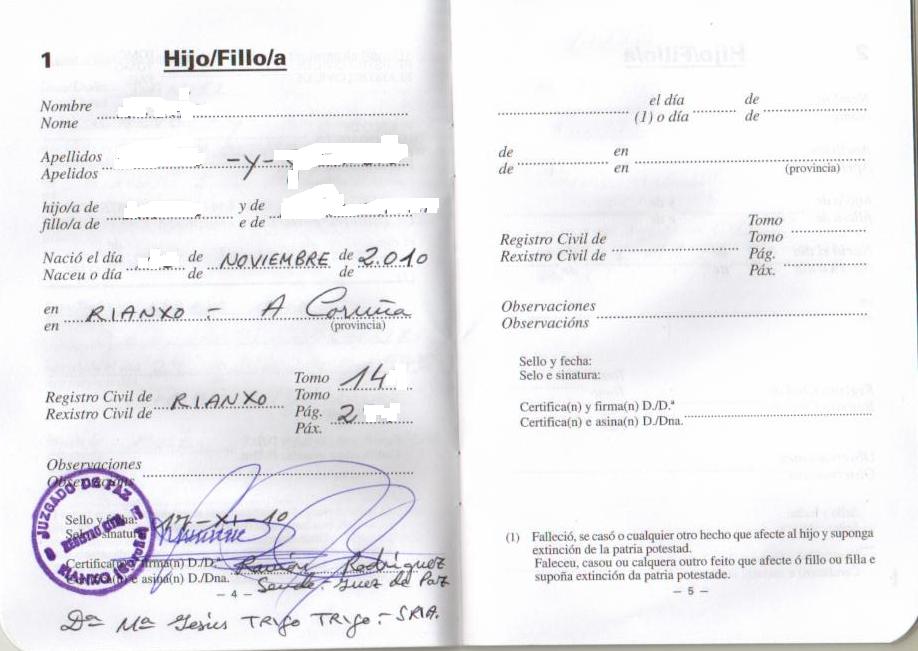 1 Hijo/Fillo/a
Nombre
Nome
Apellidos - y -
Apelidos
hijo/a de y de
fillo/a de e de
Nació el día de NOVIEMBRE de 2.010
Naceu o día de de
en RIANXO - A Coruña
en (provincia)
Tomo 14
Registro Civil de RIANXO Tomo
Rexistro Civil de Pág. 2
Páx.
Observaciones
Observacións
Sello y fecha: 17-XI-10
Selo e sinatura:
Certifica(n) y firma(n) D./D.ª Ramón Rodríguez
Certifica(n) e asina(n) D./Dna. Juez de Paz
JUZGADO DE PAZ
REGISTRO CIVIL
RIANXO (Coruña)
– 4 –
Dª Mª Jesús TRIGO TRIGO - SRIA.
el día de
(1) o día de
de en
de en (provincia)
Tomo
Registro Civil de Tomo
Rexistro Civil de Pág.
Páx.
Observaciones
Observacións
Sello y fecha:
Selo e sinatura:
Certifica(n) y firma(n) D./D.ª
Certifica(n) e asina(n) D./Dna.
(1) Falleció, se casó o cualquier otro hecho que afecte al hijo y suponga
extinción de la patria potestad.
Faleceu, casou ou calquera outro feito que afecte ó fillo ou filla e
supoña extinción da patria potestade.
– 5 –